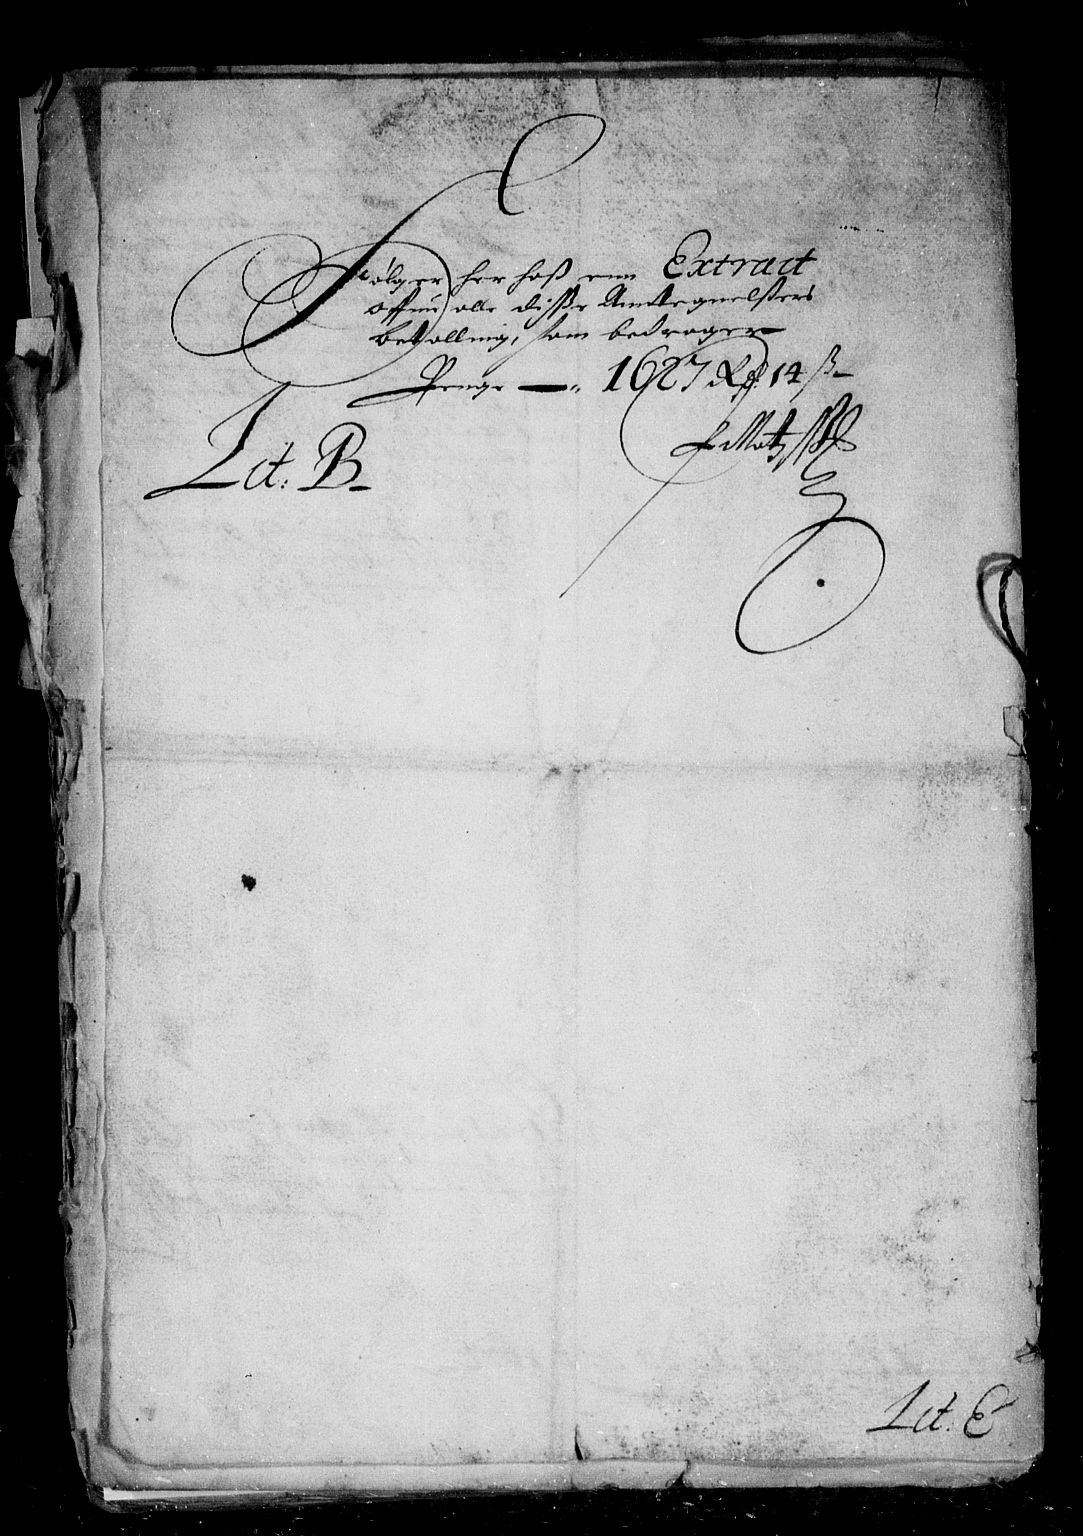 Følger her hoß enn Extract
offuer alle disse Anttegnelsers
betalling, som bedrager
Penge — 1627 Rdr. 14 ß
Lit. B
Lit. E